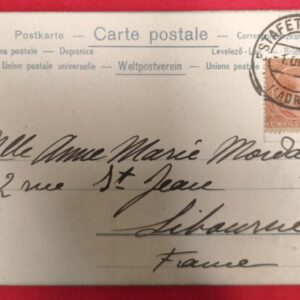 Postkarte – Carte postale – Correspon
na postala – Dopisnice Levelező-L
Union postale universelle – Weltpostverein – Unione postal
lle Anne Marie
2 rue St Jean
Libourne
France